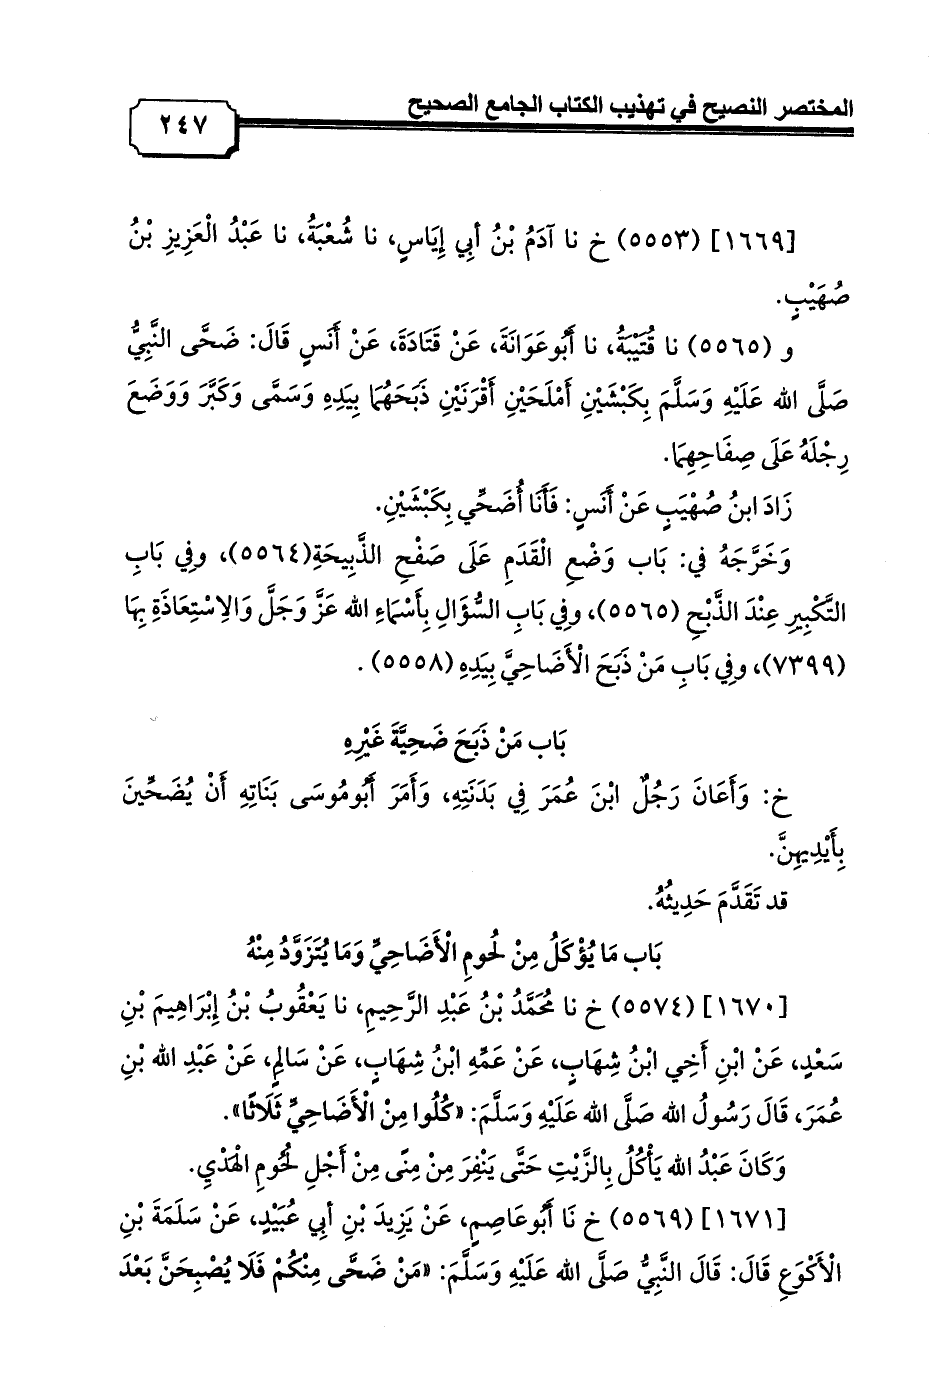 المختصر النصيح في تهذيب الكتاب الجامع الصحيح
٢٤٧
[١٦٦٩] (٥٥٥٣) خ نا آدَمُ بْنُ أبي إيَاسٍ، نا شُعْبَةُ، نا عَبْدُ الْعَزِيزِ بْنُ
صُهَيْبٍ.
و (٥٥٦٥) نا قُتَيْبَةُ، نا أَبُوعَوَانَةَ، عَنْ قَتَادَةَ، عَنْ أَنَسٍ قَالَ: ضَحَّى النَّبِيُّ
صَلَّى الله عَلَيْهِ وَسَلَّمَ بِكَبْشَيْنِ أَمْلَحَيْنِ أَقْرَنَيْنِ ذَبَحَهُمَا بِيَدِهِ وَسَمَّى وَكَبَّرَ وَوَضَعَ
رِجْلَهُ عَلَى صِفَاحِهِمَا.
زَادَ ابنُ صُهْيَبٍ عَنْ أَنَسٍ: فَأَنَا أُضَحِّي بِكَبْشَيْنِ.
وَخَرَّجَهُ في: بَاب وَضْعِ الْقَدَمِ عَلَى صَفْحِ الذَّبِيحَةِ(٥٥٦٤)، وفِي بَابِ
التَّكْبِيرِ عِنْدَ الذَّبْحِ (٥٥٦٥)، وفِي بَابِ السُّؤَالِ بِأَسْمَاءِ الله عَزَّ وَجَلَّ وَالِاسْتِعَاذَةِ بِهَا
(٧٣٩٩)، وفِي بَابِ مَنْ ذَبَحَ الْأَضَاحِيَّ بِيَدِهِ (٥٥٥٨) .
بَاب مَنْ ذَبَحَ ضَحِيَّةَ غَيْرِهِ
خ: وَأَعَانَ رَجُلٌ ابْنَ عُمَرَ فِي بَدَنَتِهِ، وَأَمَرَ أَبُومُوسَى بَنَاتِهِ أَنْ يُضَحِّينَ
بِأَيْدِيهِنَّ.
قد تَقَدَّمَ حَدِيثُهُ.
بَاب مَا يُؤْكَلُ مِنْ لُحومِ الْأَضَاحِيِّ وَمَا يُتَزَوَّدُ مِنْهُ
[١٦٧٠] (٥٥٧٤) خ نا مُحَمَّدُ بْنُ عَبْدِ الرَّحِيمِ، نا يَعْقُوبُ بْنُ إِبْرَاهِيمَ بْنِ
سَعْدٍ، عَنْ ابْنِ أَخِي ابْنُ شِهَابٍ، عَنْ عَمِّهِ ابْنُ شِهَابٍ، عَنْ سَالِمٍ، عَنْ عَبْدِ الله بْنِ
عُمَرَ، قَالَ رَسُولُ الله صَلَّى الله عَلَيْهِ وَسَلَّمَ: «كُلُوا مِنْ الْأَضَاحِيِّ ثَلَاثًا».
وَكَانَ عَبْدُ الله يَأْكُلُ بِالزَّيْتِ حَتَّى يَنْفِرَ مِنْ مِنًى مِنْ أَجْلِ لُحُومِ الْهَدْيِ.
[١٦٧١] (٥٥٦٩) خ نَا أَبُوعَاصِمٍ، عَنْ يَزِيدَ بْنِ أبي عُبَيْدٍ، عَنْ سَلَمَةَ بْنِ
الْأَكْوَعِ قَالَ: قَالَ النَّبِيُّ صَلَّى الله عَلَيْهِ وَسَلَّمَ: «مَنْ ضَحَّى مِنْكُمْ فَلَا يُصْبِحَنَّ بَعْدَ